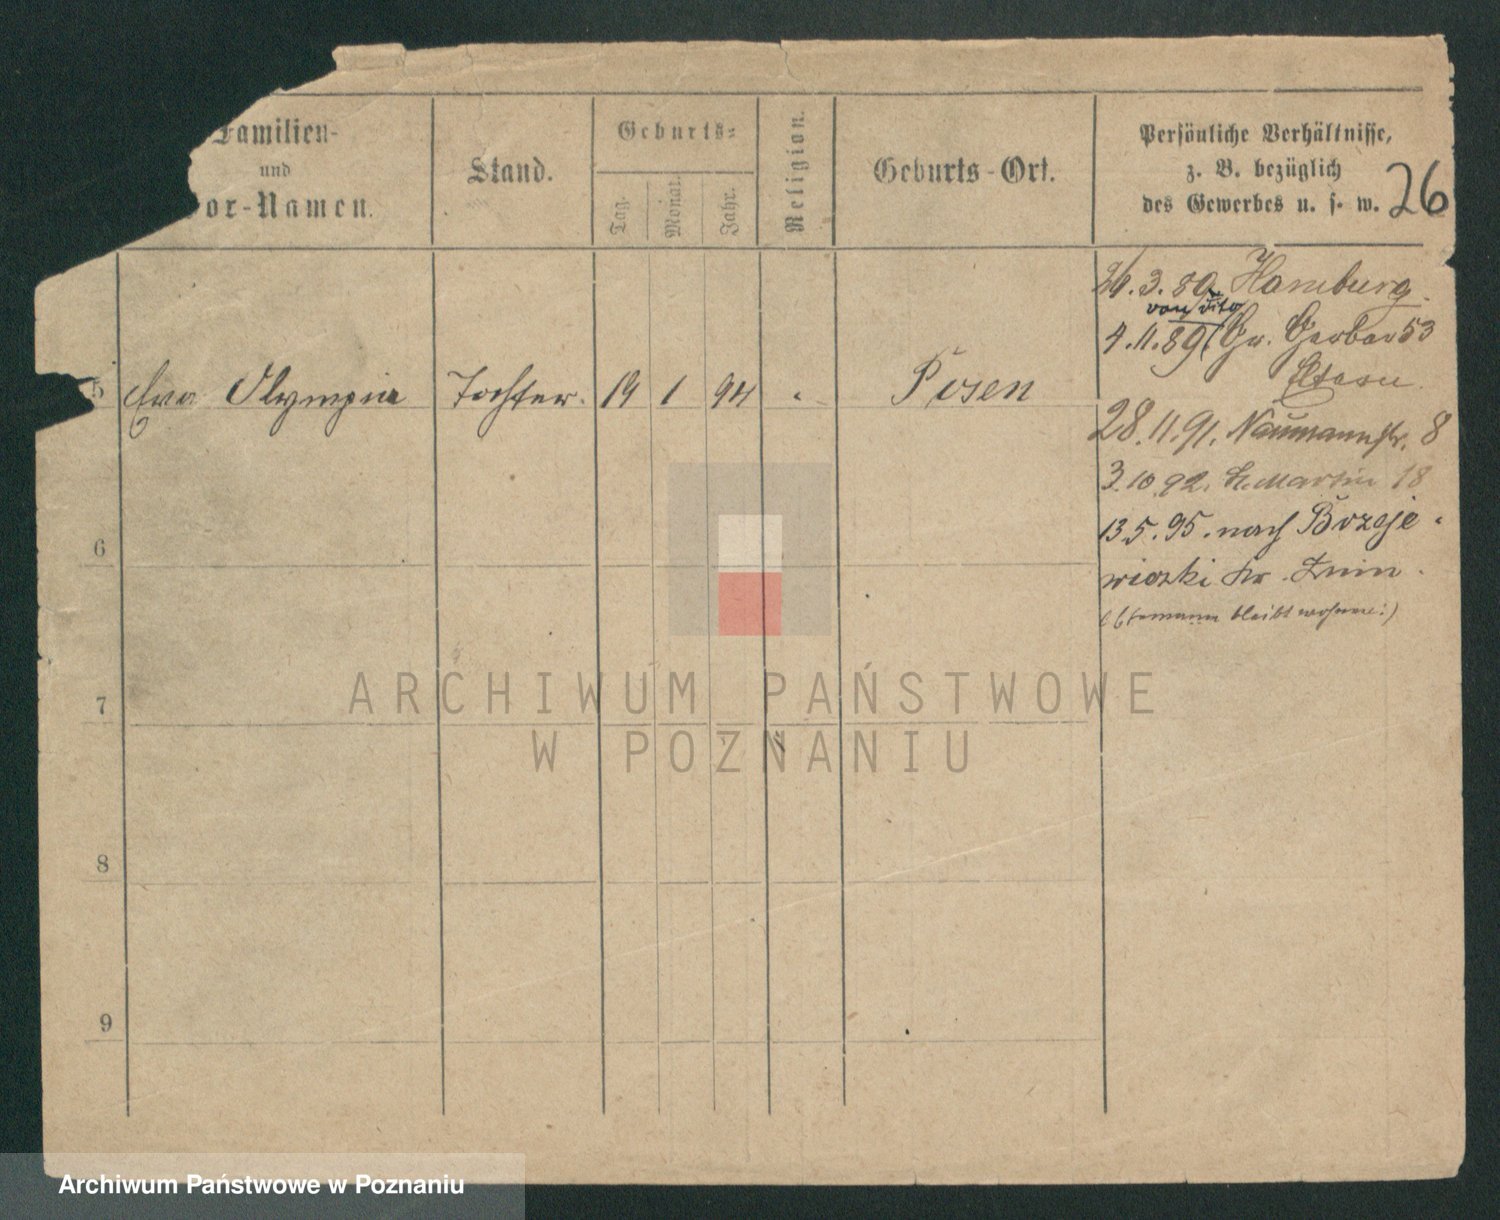 Familien-
und
Vor-Namen.
Stand.
Geburts-
Tag.
Monat.
Jahr.
Religion.
Geburts-Ort.
Persönliche Verhältnisse,
z. B. bezüglich
des Gewerbes u. s. w.
26
5 Eva Olympia Tochter. 19 1 94 " Posen
6
7
8
9
.3.89 Hamburg.
von dito
4.11.89 Gr. Gerber 53
Eltern.
28.11.91. Naumannstr. 8
3.10.92. St. Martin 18
13.5.95. nach Bozeje-
wiczki Kr. Znin.
(Ehemann bleibt wohnen:)
ARCHIWUM PAŃSTWOWE
W POZNANIU
Archiwum Państwowe w Poznaniu